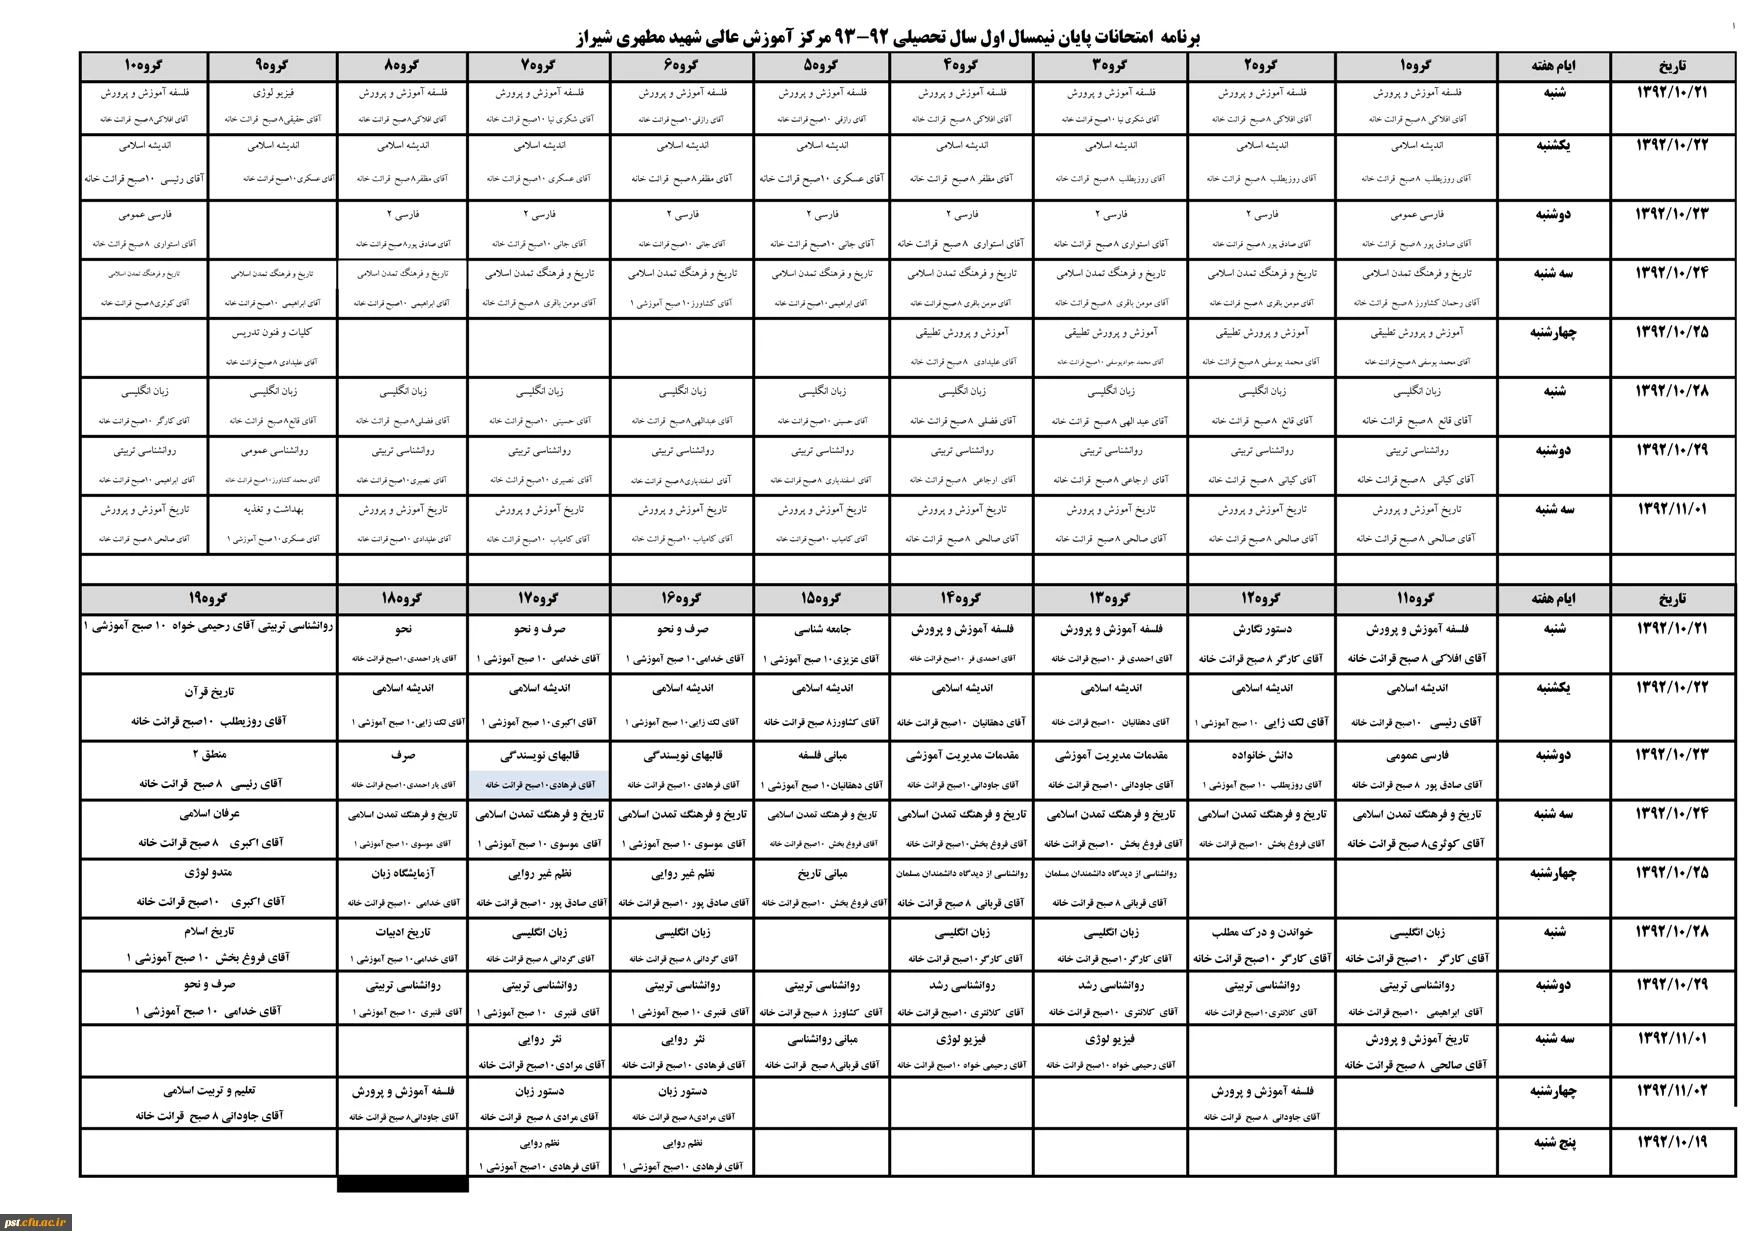 ۱
برنامه امتحانات پایان نیمسال اول سال تحصیلی ۹۲-۹۳ مرکز آموزش عالی شهید مطهری شیراز
تاریخ ایام هفته گروه۱ گروه۲ گروه۳ گروه۴ گروه۵ گروه۶ گروه۷ گروه۸ گروه۹ گروه۱۰
۱۳۹۲/۱۰/۲۱ شنبه فلسفه آموزش و پرورش فلسفه آموزش و پرورش فلسفه آموزش و پرورش فلسفه آموزش و پرورش فلسفه آموزش و پرورش فلسفه آموزش و پرورش فلسفه آموزش و پرورش فلسفه آموزش و پرورش فیزیو لوژی فلسفه آموزش و پرورش
آقای افلاکی ۸ صبح قرائت خانه آقای افلاکی ۸ صبح قرائت خانه آقای شکری نیا ۱۰صبح قرائت خانه آقای افلاکی ۸ صبح قرائت خانه آقای رازقی ۱۰صبح قرائت خانه آقای رازقی۱۰صبح قرائت خانه آقای شکری نیا ۱۰صبح قرائت خانه آقای افلاکی۸ صبح قرائت خانه آقای حقیقی۸صبح قرائت خانه آقای افلاکی۸صبح قرائت خانه
۱۳۹۲/۱۰/۲۲ یکشنبه اندیشه اسلامی اندیشه اسلامی اندیشه اسلامی اندیشه اسلامی اندیشه اسلامی اندیشه اسلامی اندیشه اسلامی اندیشه اسلامی اندیشه اسلامی اندیشه اسلامی
آقای روزیطلب ۸ صبح قرائت خانه آقای روزیطلب ۸ صبح قرائت خانه آقای روزیطلب ۸ صبح قرائت خانه آقای مظفر ۸ صبح قرائت خانه آقای عسکری ۱۰صبح قرائت خانه آقای مظفر۸ صبح قرائت خانه آقای عسکری ۱۰صبح قرائت خانه آقای مظفر۸ صبح قرائت خانه آقای عسکری۱۰صبح قرائت خانه آقای رئیسی ۱۰صبح قرائت خانه
۱۳۹۲/۱۰/۲۳ دوشنبه فارسی عمومی فارسی ۲ فارسی ۲ فارسی ۲ فارسی ۲ فارسی ۲ فارسی ۲ فارسی ۲ فارسی عمومی
آقای صادق پور ۸ صبح قرائت خانه آقای صادق پور ۸ صبح قرائت خانه آقای استواری ۸ صبح قرائت خانه آقای استواری ۸ صبح قرائت خانه آقای جانی ۱۰صبح قرائت خانه آقای جانی ۱۰صبح قرائت خانه آقای جانی ۱۰صبح قرائت خانه آقای صادق پور۸ صبح قرائت خانه آقای استواری ۸ صبح قرائت خانه
۱۳۹۲/۱۰/۲۴ سه شنبه تاریخ و فرهنگ تمدن اسلامی تاریخ و فرهنگ تمدن اسلامی تاریخ و فرهنگ تمدن اسلامی تاریخ و فرهنگ تمدن اسلامی تاریخ و فرهنگ تمدن اسلامی تاریخ و فرهنگ تمدن اسلامی تاریخ و فرهنگ تمدن اسلامی تاریخ و فرهنگ تمدن اسلامی تاریخ و فرهنگ تمدن اسلامی تاریخ و فرهنگ تمدن اسلامی
آقای رحمان کشاورز ۸ صبح قرائت خانه آقای مومن باقری ۸ صبح قرائت خانه آقای مومن باقری ۸ صبح قرائت خانه آقای مومن باقری ۸ صبح قرائت خانه آقای ابراهیمی۱۰صبح قرائت خانه آقای کشاورز۱۰ صبح آموزشی ۱ آقای مومن باقری ۸ صبح قرائت خانه آقای ابراهیمی ۱۰صبح قرائت خانه آقای ابراهیمی ۱۰صبح قرائت خانه آقای کوثری۸صبح قرائت خانه
۱۳۹۲/۱۰/۲۵ چهارشنبه آموزش و پرورش تطبیقی آموزش و پرورش تطبیقی آموزش و پرورش تطبیقی آموزش و پرورش تطبیقی کلیات و فنون تدریس
آقای محمد یوسفی ۸ صبح قرائت خانه آقای محمد یوسفی ۸ صبح قرائت خانه آقای محمد جوادیوسفی ۱۰صبح قرائت خانه آقای علیدادی ۸ صبح قرائت خانه آقای علیدادی ۸ صبح قرائت خانه
۱۳۹۲/۱۰/۲۸ شنبه زبان انگلیسی زبان انگلیسی زبان انگلیسی زبان انگلیسی زبان انگلیسی زبان انگلیسی زبان انگلیسی زبان انگلیسی زبان انگلیسی زبان انگلیسی
آقای قانع ۸ صبح قرائت خانه آقای قانع ۸ صبح قرائت خانه آقای عبد الهی ۸ صبح قرائت خانه آقای فضلی ۸ صبح قرائت خانه آقای حسینی ۱۰صبح قرائت خانه آقای عبدالهی۸ صبح قرائت خانه آقای حسینی ۱۰صبح قرائت خانه آقای فضلی۸ صبح قرائت خانه آقای قانع۸ صبح قرائت خانه آقای کارگر ۱۰صبح قرائت خانه
۱۳۹۲/۱۰/۲۹ دوشنبه روانشناسی تربیتی روانشناسی تربیتی روانشناسی تربیتی روانشناسی تربیتی روانشناسی تربیتی روانشناسی تربیتی روانشناسی تربیتی روانشناسی تربیتی روانشناسی عمومی روانشناسی تربیتی
آقای کیانی ۸ صبح قرائت خانه آقای کیانی ۸ صبح قرائت خانه آقای ارجاعی ۸ صبح قرائت خانه آقای ارجاعی ۸ صبح قرائت خانه آقای اسفندیاری ۸ صبح قرائت خانه آقای اسفندیاری۸ صبح قرائت خانه آقای نصیری ۱۰صبح قرائت خانه آقای نصیری۱۰صبح قرائت خانه آقای محمد کشاورز۱۰صبح قرائت خانه آقای ابراهیمی ۱۰صبح قرائت خانه
۱۳۹۲/۱۱/۰۱ سه شنبه تاریخ آموزش و پرورش تاریخ آموزش و پرورش تاریخ آموزش و پرورش تاریخ آموزش و پرورش تاریخ آموزش و پرورش تاریخ آموزش و پرورش تاریخ آموزش و پرورش تاریخ آموزش و پرورش بهداشت و تغذیه تاریخ آموزش و پرورش
آقای صالحی ۸ صبح قرائت خانه آقای صالحی ۸ صبح قرائت خانه آقای صالحی ۸ صبح قرائت خانه آقای صالحی ۸ صبح قرائت خانه آقای کامیاب ۱۰صبح قرائت خانه آقای کامیاب ۱۰صبح قرائت خانه آقای کامیاب ۱۰صبح قرائت خانه آقای علیدادی ۱۰صبح قرائت خانه آقای عسکری۱۰ صبح آموزشی ۱ آقای صالحی ۸ صبح قرائت خانه
تاریخ ایام هفته گروه۱۱ گروه۱۲ گروه۱۳ گروه۱۴ گروه۱۵ گروه۱۶ گروه۱۷ گروه۱۸ گروه۱۹
۱۳۹۲/۱۰/۲۱ شنبه فلسفه آموزش و پرورش دستور نگارش فلسفه آموزش و پرورش فلسفه آموزش و پرورش جامعه شناسی صرف و نحو صرف و نحو نحو روانشناسی تربیتی آقای رحیمی خواه ۱۰ صبح آموزشی ۱
آقای افلاکی ۸ صبح قرائت خانه آقای کارگر ۸ صبح قرائت خانه آقای احمدی فر ۱۰صبح قرائت خانه آقای احمدی فر ۱۰صبح قرائت خانه آقای عزیزی۱۰ صبح آموزشی ۱ آقای خدامی۱۰ صبح آموزشی ۱ آقای خدامی ۱۰ صبح آموزشی ۱ آقای یار احمدی۱۰صبح قرائت خانه
۱۳۹۲/۱۰/۲۲ یکشنبه اندیشه اسلامی اندیشه اسلامی اندیشه اسلامی اندیشه اسلامی اندیشه اسلامی اندیشه اسلامی اندیشه اسلامی اندیشه اسلامی تاریخ قرآن
آقای رئیسی ۱۰صبح قرائت خانه آقای لک زایی ۱۰ صبح آموزشی ۱ آقای دهقانیان ۱۰صبح قرائت خانه آقای دهقانیان ۱۰صبح قرائت خانه آقای کشاورز۸ صبح قرائت خانه آقای لک زایی۱۰ صبح آموزشی ۱ آقای اکبری۱۰ صبح آموزشی ۱ آقای لک زایی۱۰ صبح آموزشی ۱ آقای روزیطلب ۱۰صبح قرائت خانه
۱۳۹۲/۱۰/۲۳ دوشنبه فارسی عمومی دانش خانواده مقدمات مدیریت آموزشی مقدمات مدیریت آموزشی مبانی فلسفه قالبهای نویسندگی قالبهای نویسندگی صرف منطق ۲
آقای صادق پور ۸ صبح قرائت خانه آقای روزیطلب ۱۰ صبح آموزشی ۱ آقای جاودانی ۱۰صبح قرائت خانه آقای جاودانی۱۰صبح قرائت خانه آقای دهقانیان۱۰ صبح آموزشی ۱ آقای فرهادی ۱۰صبح قرائت خانه آقای فرهادی۱۰صبح قرائت خانه آقای یار احمدی۱۰صبح قرائت خانه آقای رئیسی ۸ صبح قرائت خانه
۱۳۹۲/۱۰/۲۴ سه شنبه تاریخ و فرهنگ تمدن اسلامی تاریخ و فرهنگ تمدن اسلامی تاریخ و فرهنگ تمدن اسلامی تاریخ و فرهنگ تمدن اسلامی تاریخ و فرهنگ تمدن اسلامی تاریخ و فرهنگ تمدن اسلامی تاریخ و فرهنگ تمدن اسلامی تاریخ و فرهنگ تمدن اسلامی عرفان اسلامی
آقای کوثری۸ صبح قرائت خانه آقای فروغ بخش ۱۰صبح قرائت خانه آقای فروغ بخش ۱۰صبح قرائت خانه آقای فروغ بخش۱۰صبح قرائت خانه آقای فروغ بخش ۱۰صبح قرائت خانه آقای موسوی ۱۰ صبح آموزشی ۱ آقای موسوی ۱۰ صبح آموزشی ۱ آقای موسوی ۱۰ صبح آموزشی ۱ آقای اکبری ۸ صبح قرائت خانه
۱۳۹۲/۱۰/۲۵ چهارشنبه روانشناسی از دیدگاه دانشمندان مسلمان روانشناسی از دیدگاه دانشمندان مسلمان مبانی تاریخ نظم غیر روایی نظم غیر روایی آزمایشگاه زبان متدو لوژی
آقای قربانی ۸ صبح قرائت خانه آقای قربانی ۸ صبح قرائت خانه آقای فروغ بخش ۱۰صبح قرائت خانه آقای صادق پور ۱۰صبح قرائت خانه آقای صادق پور ۱۰صبح قرائت خانه آقای خدامی ۱۰صبح قرائت خانه آقای اکبری ۱۰صبح قرائت خانه
۱۳۹۲/۱۰/۲۸ شنبه زبان انگلیسی خواندن و درک مطلب زبان انگلیسی زبان انگلیسی زبان انگلیسی زبان انگلیسی تاریخ ادبیات تاریخ اسلام
آقای کارگر ۱۰صبح قرائت خانه آقای کارگر ۱۰صبح قرائت خانه آقای کارگر۱۰صبح قرائت خانه آقای کارگر۱۰صبح قرائت خانه آقای گردانی ۸ صبح قرائت خانه آقای گردانی ۸ صبح قرائت خانه آقای خدامی۱۰ صبح آموزشی ۱ آقای فروغ بخش ۱۰ صبح آموزشی ۱
۱۳۹۲/۱۰/۲۹ دوشنبه روانشناسی تربیتی روانشناسی تربیتی روانشناسی رشد روانشناسی رشد روانشناسی تربیتی روانشناسی تربیتی روانشناسی تربیتی روانشناسی تربیتی صرف و نحو
آقای ابراهیمی ۱۰صبح قرائت خانه آقای کلانتری۱۰صبح قرائت خانه آقای کلانتری ۱۰صبح قرائت خانه آقای کلانتری ۱۰صبح قرائت خانه آقای کشاورز ۸ صبح قرائت خانه آقای قنبری ۱۰ صبح آموزشی ۱ آقای قنبری ۱۰ صبح آموزشی ۱ آقای قنبری ۱۰ صبح آموزشی ۱ آقای خدامی ۱۰ صبح آموزشی ۱
۱۳۹۲/۱۱/۰۱ سه شنبه تاریخ آموزش و پرورش فیزیو لوژی فیزیو لوژی مبانی روانشناسی نثر روایی نثر روایی
آقای صالحی ۸ صبح قرائت خانه آقای رحیمی خواه ۱۰صبح قرائت خانه آقای رحیمی خواه ۱۰صبح قرائت خانه آقای قربانی۸ صبح قرائت خانه آقای فرهادی ۱۰صبح قرائت خانه آقای مرادی۱۰صبح قرائت خانه
۱۳۹۲/۱۱/۰۲ چهارشنبه فلسفه آموزش و پرورش دستور زبان دستور زبان فلسفه آموزش و پرورش تعلیم و تربیت اسلامی
آقای جاودانی ۸ صبح قرائت خانه آقای مرادی۸ صبح قرائت خانه آقای مرادی ۸ صبح قرائت خانه آقای جاودانی۸ صبح قرائت خانه آقای جاودانی ۸ صبح قرائت خانه
۱۳۹۲/۱۰/۱۹ پنج شنبه نظم روایی نظم روایی
آقای فرهادی ۱۰صبح آموزشی ۱ آقای فرهادی ۱۰صبح آموزشی ۱
pst.cfu.ac.ir